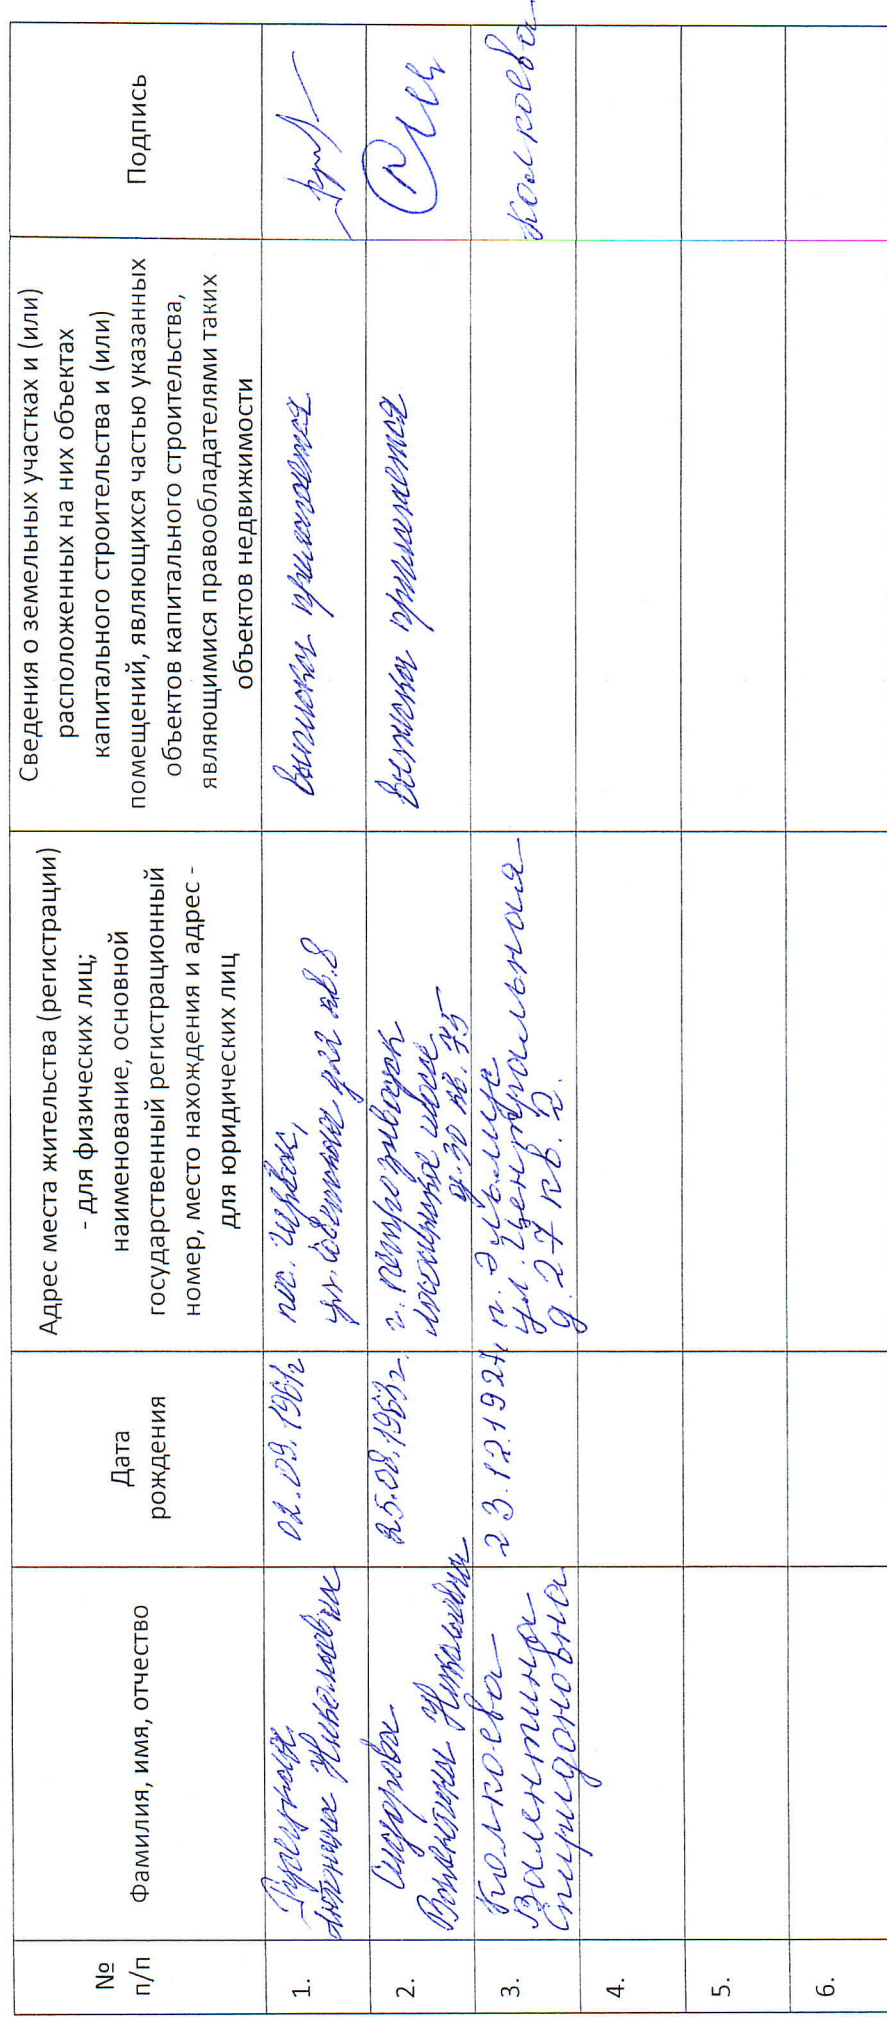 №
п/п
Фамилия, имя, отчество
Дата
рождения
Адрес места жительства (регистрации)
- для физических лиц;
наименование, основной
государственный регистрационный
номер, место нахождения и адрес -
для юридических лиц
Сведения о земельных участках и (или)
расположенных на них объектах
капитального строительства и (или)
помещений, являющихся частью указанных
объектов капитального строительства,
являющимися правообладателями таких
объектов недвижимости
Подпись
1.
Николаевна
02.09.1961г
пос.
ул. Советская кв.8
выписка прилагается
2.
Сидорова
Валентина Николаевна
25.08.1963г.
г. Петрозаводск
Лососинское шоссе
д. 30 кв. 75
выписка прилагается
3.
Колкоева
Валентина
Спиридоновна
23.12.1927г
п. Эльмус
ул. Центральная
д. 27 кв. 2.
Колкоева
4.
5.
6.